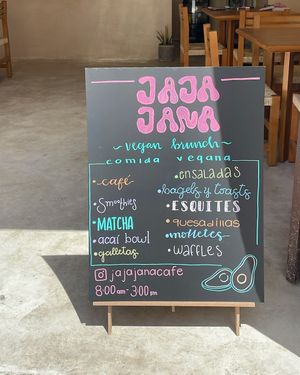 JAJA
JANA
~vegan brunch~
comida vegana
•café
•Smoothies
•MATCHA
•açaí bowl
•galletas
•ensaladas
•bagels y toasts
•ESQUITES
•quesadillas
•molletes
•WAFFLES
jajajanacafe
8:00 am - 3:00 pm